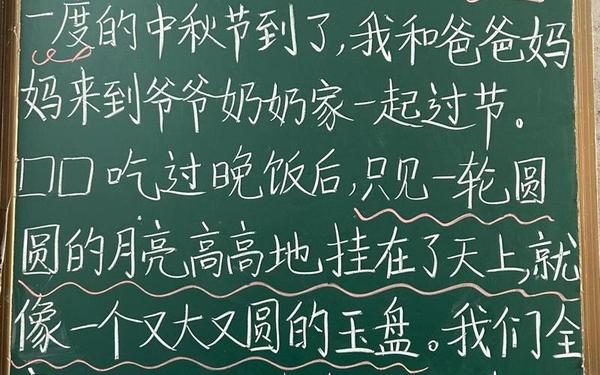 一度的中秋节到了,我和爸爸妈
妈来到爷爷奶奶家一起过节。
□□吃过晚饭后,只见一轮圆
圆的月亮高高地挂在了天上,就
像一个又大又圆的玉盘。我们全